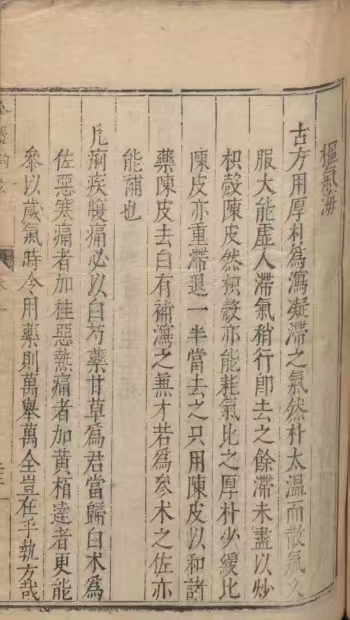 樞氣海
古方用厚朴為瀉凝滯之氣然朴太温而散氣久
服大能虛人滯氣稍行即去之餘滯未盡以炒
枳殼陳皮然枳殼亦能耗氣比之厚朴少緩比
陳皮亦重滯退一半當去之只用陳皮以和諸
藥陳皮去白有補瀉之兼才若為參术之佐亦
能補也
凡痢疾腹痛必以白芍藥甘草為君當歸白术為
佐惡寒痛者加桂惡熱痛者加黃栢達者更能
參以歲氣時令用藥則萬舉萬全豈在乎執方哉